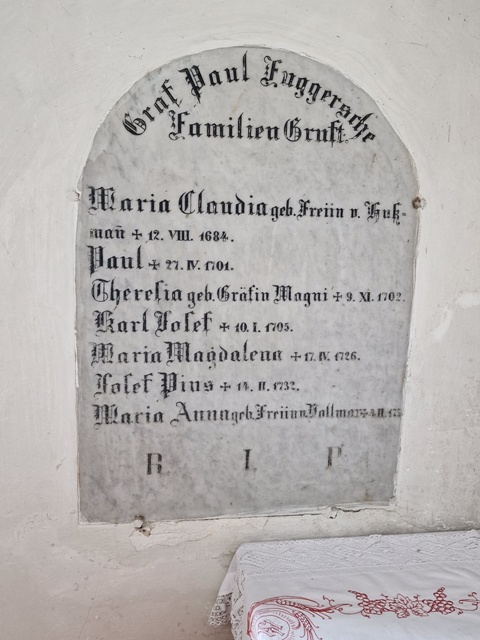 Graf Paul Fuggersche
Familien Gruft.
Maria Claudia geb. Freiin v.
mañ + 12. VIII. 1684.
Paul + 27. IV. 1701.
Theresia geb. Gräfin Magni + 9. XI. 1702.
Karl Josef + 10. I. 1705.
Maria Magdalena + 17. IV. 1726.
Josef Pius + 14. II. 1732.
Maria Anna geb. Freiin v. Vollmar + 4. II.
R I P